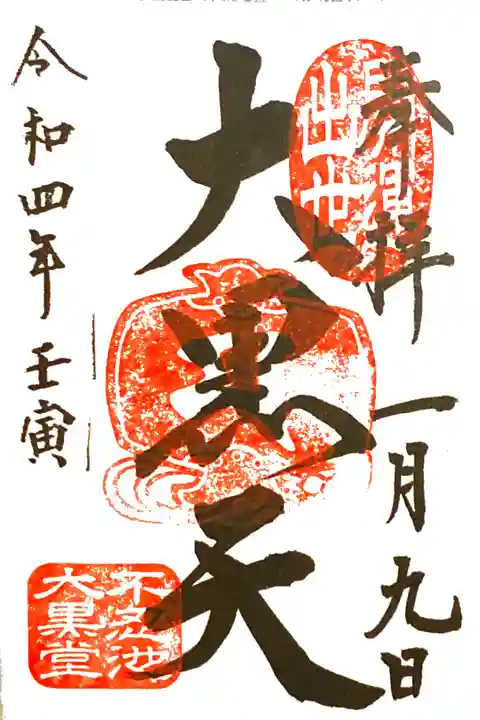 奉拝
一月九日
出世
大黒天
令和四年 壬寅
不忍池
大黒堂